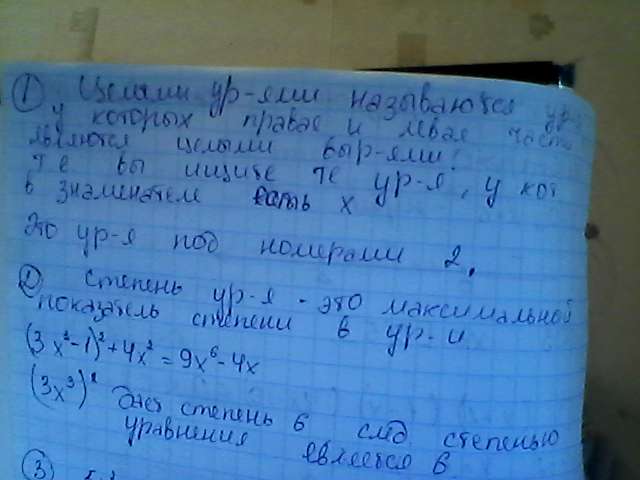 ① Целыми ур-ями называются ур-я
у которых правая и левая часть
являются целыми выр-ями
те вы ищите те ур-я, у кот
в знаменателе есть x
Это ур-я под номерами 2,
② степень ур-я - это максимальной
показатель степени в ур-и
(3x³-1)²+4x² = 9x⁶-4x
(3x³)² дает степень 6 след степенью
уравнения является 6
③